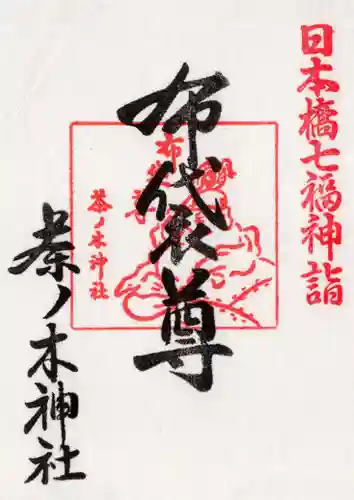 日本橋七福神詣
布代衣尊
布袋尊
茶ノ木神社
茶ノ木神社